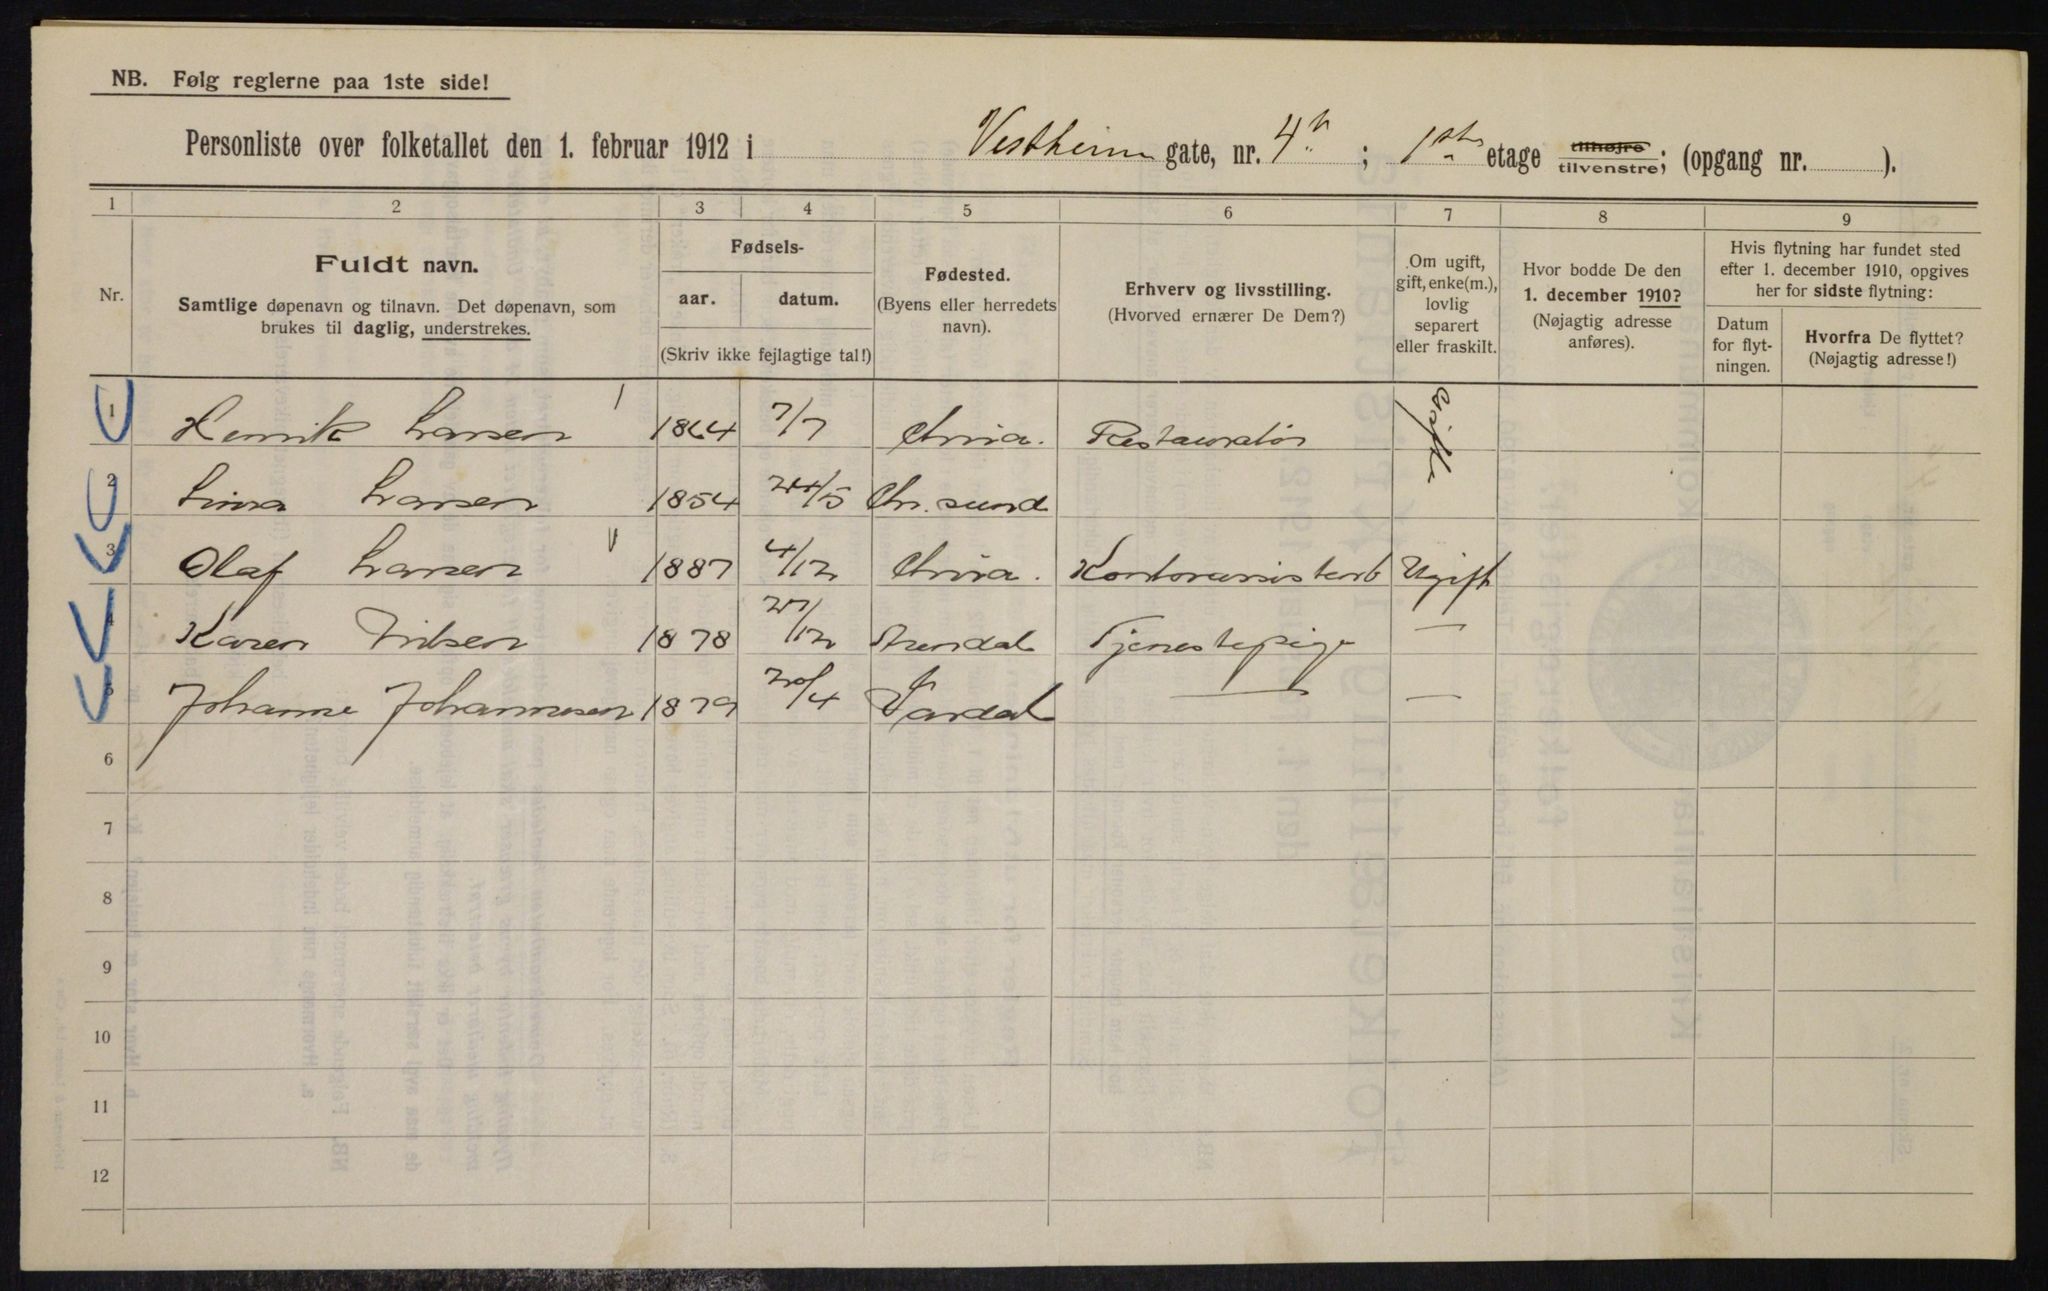 NB. Følg reglerne paa 1ste side!
Personliste over folketallet den 1. februar 1912 i Vestheim gate, nr. 4b ; 1ste etage tilhøjre tilvenstre; (opgang nr. ).
1 2 3 4 5 6 7 8 9
Nr.
Fuldt navn.
Samtlige døpenavn og tilnavn. Det døpenavn, som
brukes til daglig, understrekes.
Fødsels-
aar. datum.
(Skriv ikke fejlagtige tal!)
Fødested.
(Byens eller herredets
navn).
Erhverv og livsstilling.
(Hvorved ernærer De Dem?)
Om ugift,
gift, enke(m.),
lovlig
separert
eller fraskilt.
Hvor bodde De den
1. december 1910?
(Nøjagtig adresse
anføres).
Hvis flytning har fundet sted
efter 1. december 1910, opgives
her for sidste flytning:
Datum
for flyt-
ningen.
Hvorfra De flyttet?
(Nøjagtig adresse!)
1 Henrik Larsen 1864 7/7 Chria. Restauratør Gifte
2 Larsen 1854 24/5 Chr. sund
3 Olaf Larsen 1887 4/12 Chria. Kontorassistent Ugift
4 Karen Nilsen 1878 27/12 Arendal Tjenestepige —
5 Johanne Johannesen 1879 20/4 Vardal — —
6
7
8
9
10
11
12